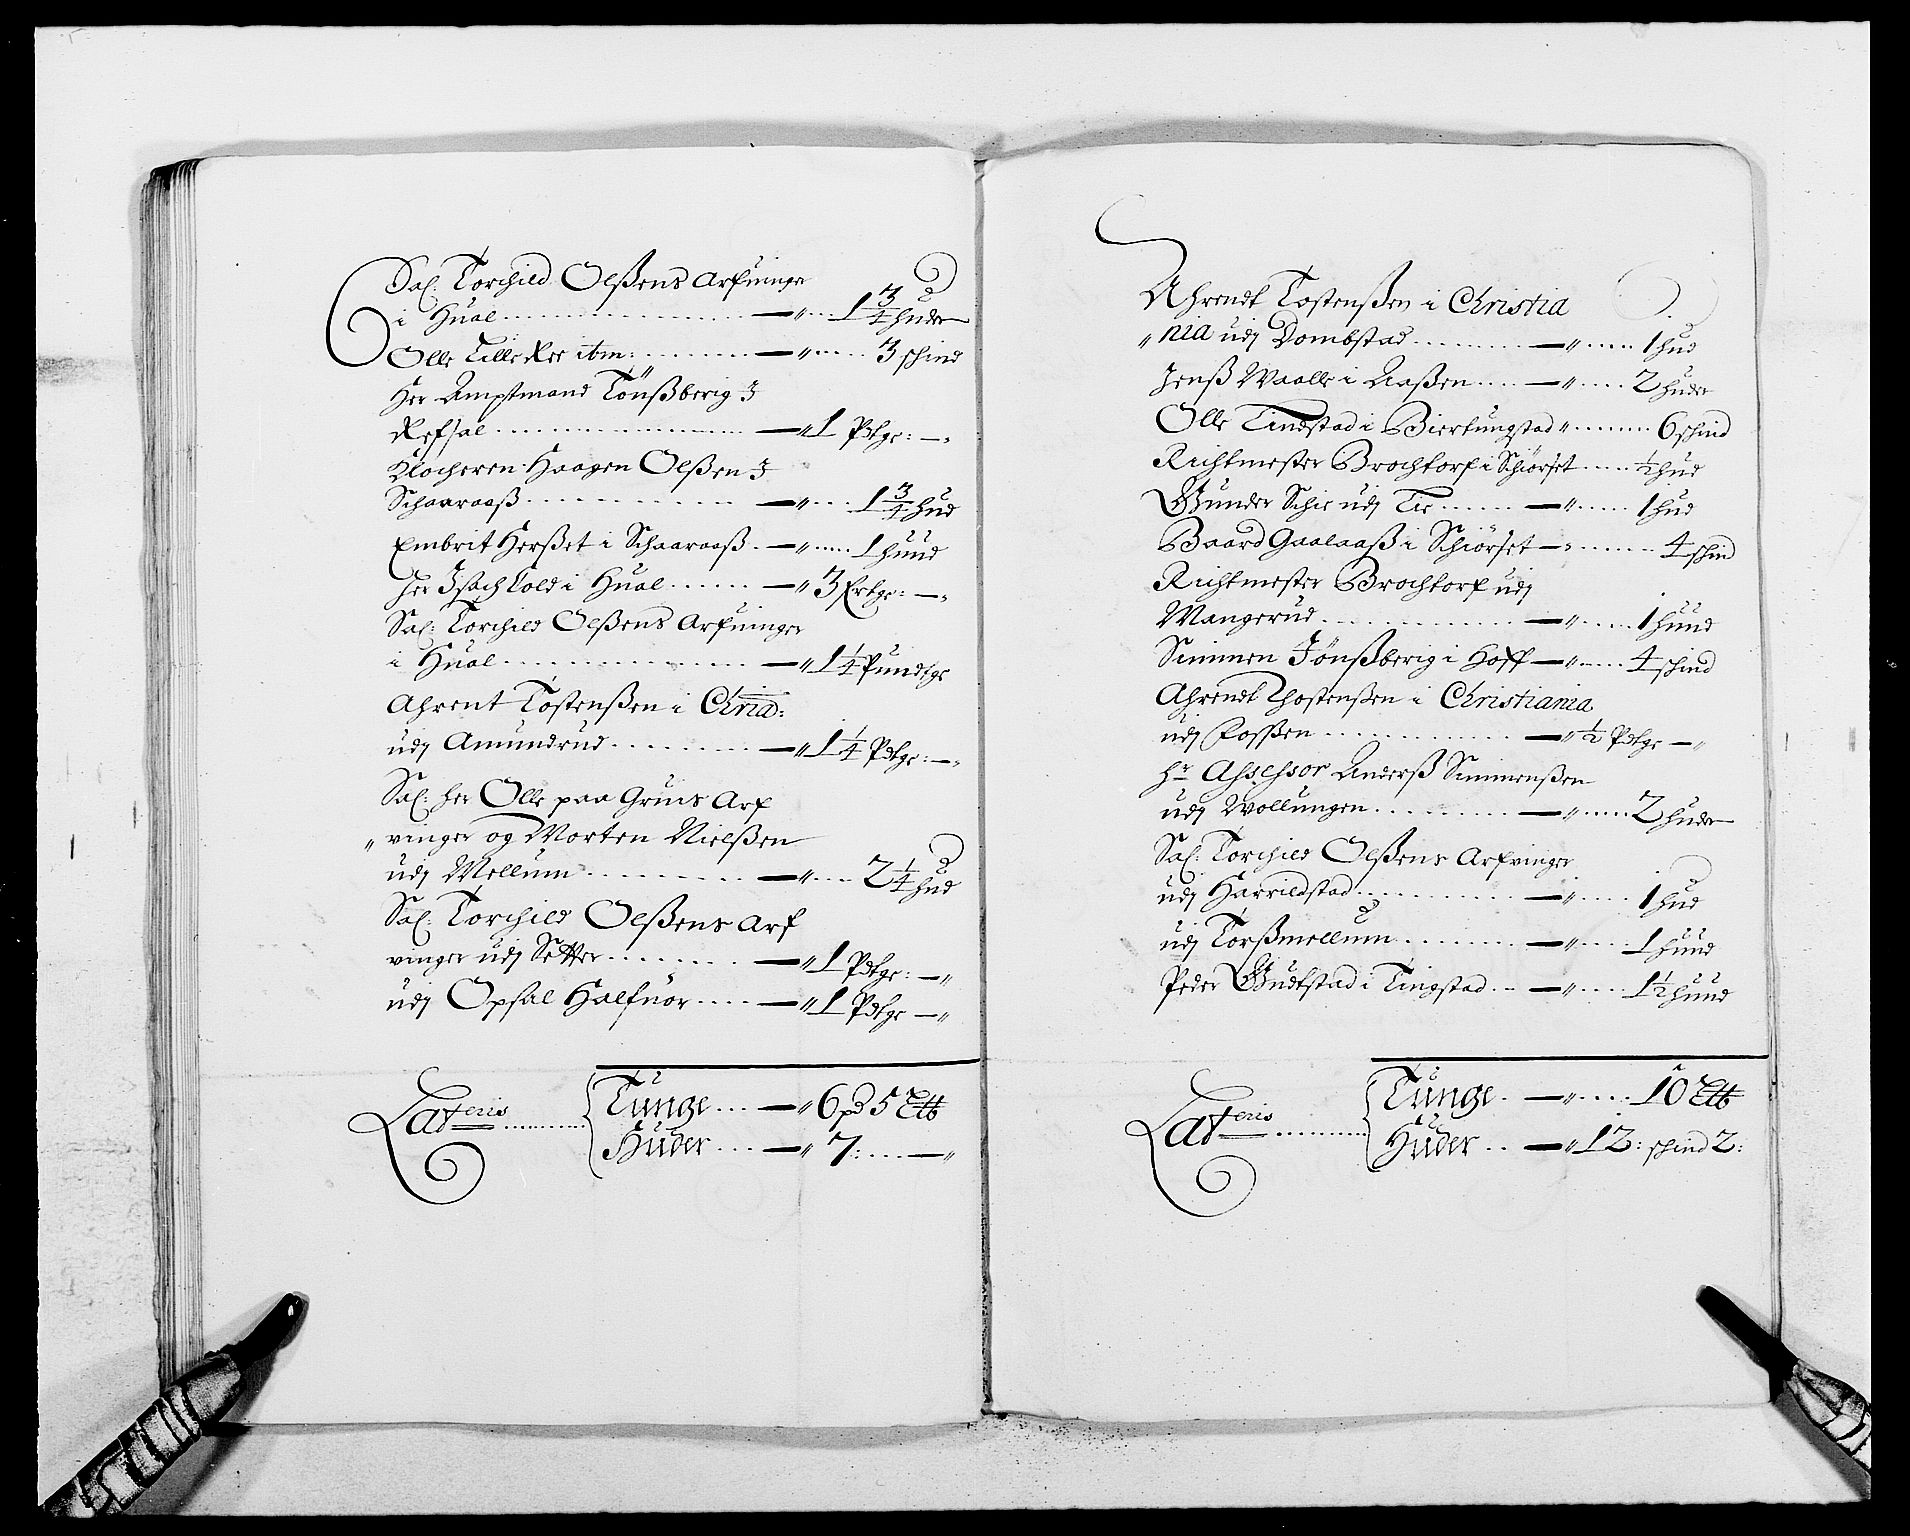 Sal: Torchild Olßens Arfuinger
i Hual - " 1 3/4 huder
Olle Lille Ree itm: - " 3 schind
Her Amptmand Tönßberig I
Refsal - " 1 Pdtge: - "
Klocheren Haagen Olßen I
Schaaraaß - " 1 3/4 hud
Embrit Herßet i Schaaraaß - " 1 huud
Her Isach Cold i Hual - " 3 Fertge: - "
Sal: Torchild Olßens Arfuinger
i Hual - " 1 1/4 Pundtge
Ahrent Tostenßen i Chria:
udj Amundrud - " 1 1/4 Pdtge: - "
Sal: her Olle paa Gruis Arf
" vinger og Morten Nielßen
udj Mellum - " 2 1/4 hud
Sal: Torchild Olßens Arf
vinger udj Setter - " 1 Pdtge: - "
udj Opsal Halfuor - " 1 Pdtge - "
Lateris
Tunge - " 6 pd 5 Ltb
Huder - " 7: - "
Ahrendt Tostenßen i Christia
" nia udj Dombstad - " 1 hud
Jenß Waalle i Aaßen - " 2 huder
Olle Tindstad i Biertungstad " 6 schind
Richtmester Brochtorf i Schiörset 1/2 hud
Gunder Schie udj Tie - " 1 hud
Baard Gaalaaß i Schiörset - " 4 schind
Richtmester Brochtorf udj
Mangerud - " 1 huud
Simmen Jönßberig i Hoff - " 4 schind
Ahrendt Thostenßen i Christiania
udj Foßßen - " 1/2 Pdtge - "
hr Assessor Anderß Simmenßen
udj Wollungen - " 2 huder
Sal: Torchild Olßens Arfvinger
udj Harrildstad - " 1 hud
udj Torßmellum - " 1 huud
Peder Gudtstad i Tingstad - " 1 1/2 huud
Lateris
Tunge - " 10 Ltb
Huder - " 12: schind 2: